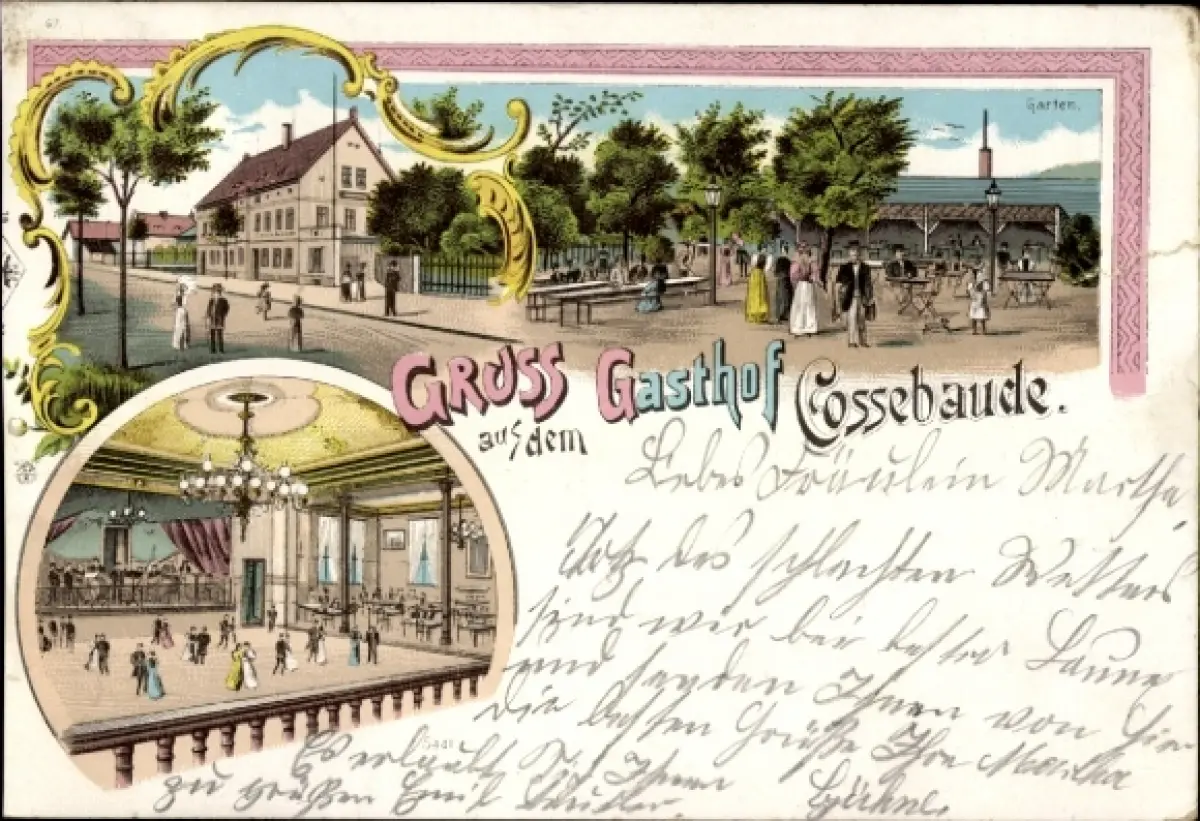 67
Garten.
GRUSS
aus dem
Gasthof Cossebaude.
Saal
Liebes Fräulein Martha,
Trotz des schlechten Wetters
sind wir bei bester Laune
und senden Ihnen von hier
die besten Grüße Ihre Martha
Es erlaubt sich Ihnen
zu grüßen Emil